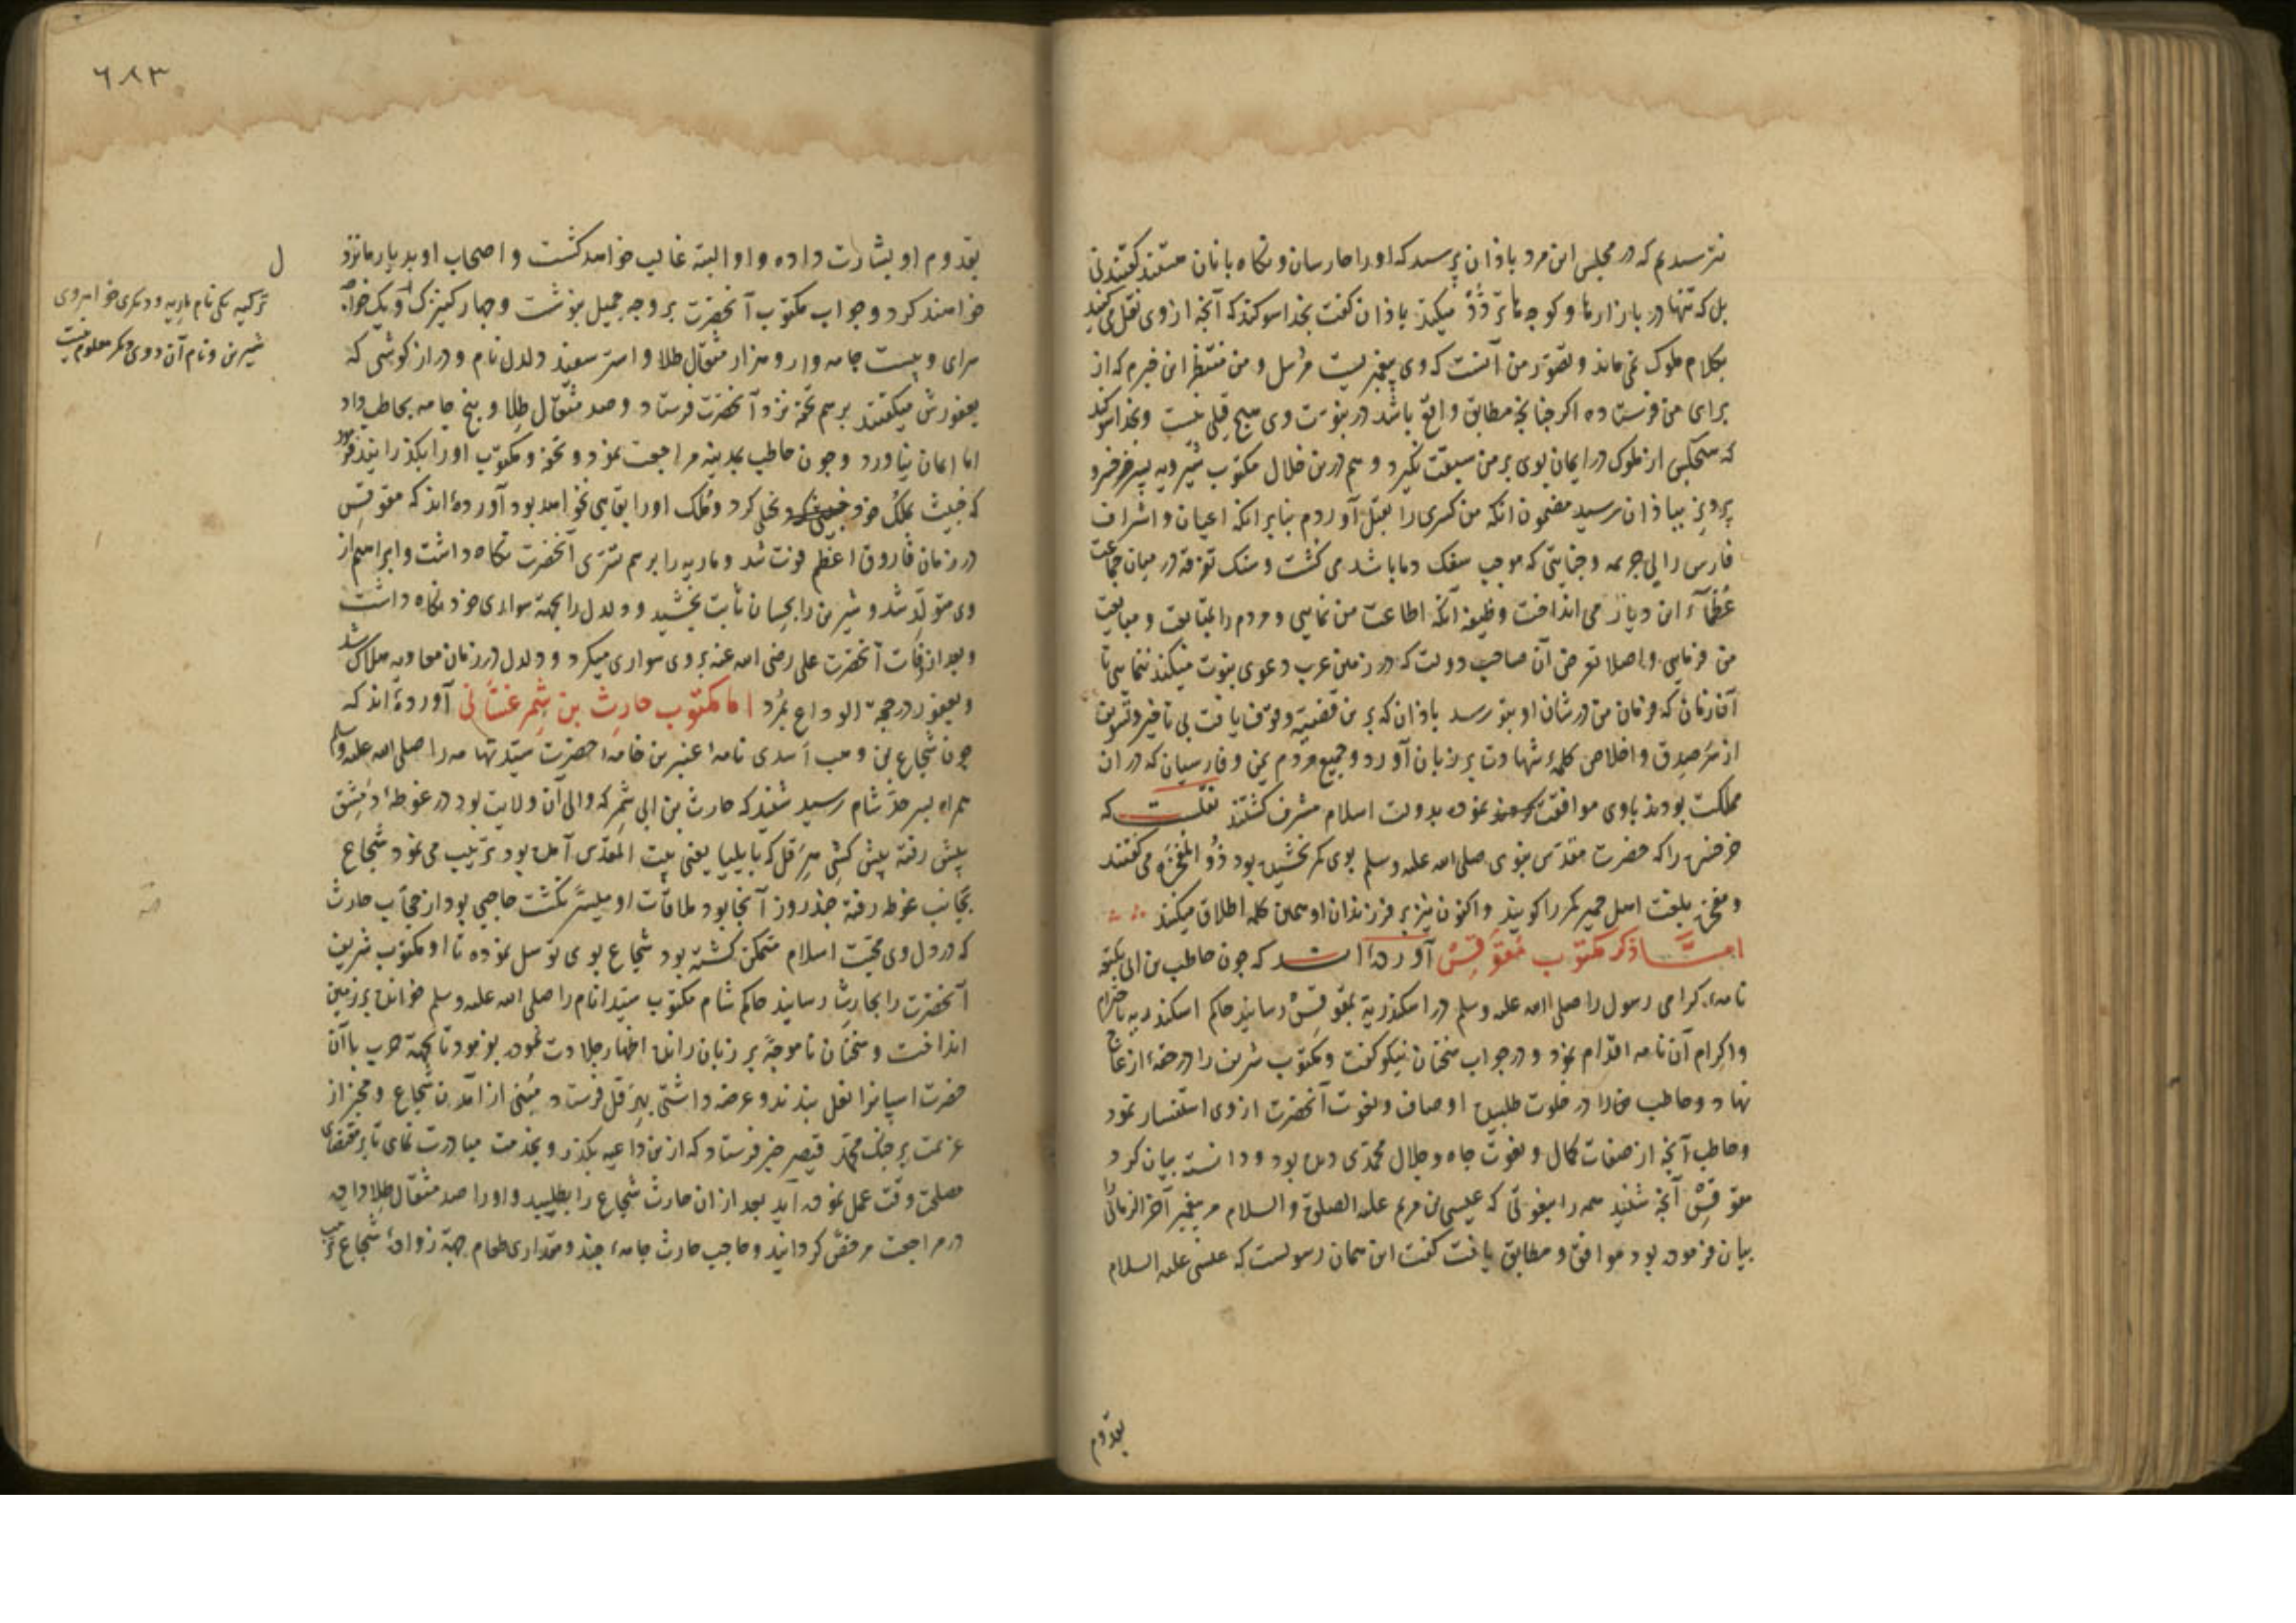 نترسیدیم که در مجلس این مرد باذان پرسید که او را حارسان و نگاه بانان هستند گفتند نی
بل که تنها در بازارها و کوچه ها تردّد میکند باذان گفت بخدا سوکند که آنچه از وی نقل می کنید
بکلام ملوک نمی ماند و تصوّر من آنست که وی پیغمبریست مرسل و من منتظر این خبرم که از
برای من فرستاده اکر چنانچه مطابق واقع باشد در نبوّت وی هیچ قیلی نیست و بخدا سوکند
که هیچکس از ملوک در ایمان بوی بر من سبقت نکیرد و هم درین خلال مکتوب شیرویه پسر خرخسرو
پرویز بباذان رسید مضمون انکه من کسری را بقتل آوردم بنابر انکه اعیان و اشراف
فارس را بی جریمه و جنایتی که موجب سفک دما باشد می کشت و سنک تفرقه در میان جماعت
عُظمآء این دیار می انداخت وظیفه آنکه اطاعت من نمایی و مردم را بمتابعت و مبایعت
من فرمایی و اصلا تعرض آن صاحب دولت که در زمین عرب دعوی نبوت میکند ننمایی تا
آن زمان که فرمان من در شان او بتو رسد باذان که برین قضیه وقوف یافت بی تاخیر و تسویف
از سر صدق و اخلاص کلمهٔ شهادت بر زبان آورد و جمیع مردم یمن و فارسیان که در ان
مملکت بودند باوی موافقت نموده بدولت اسلام مشرف کشتند نقلست که
خرخسره را که حضرت مقدّس نبوی صلی الله علیه وسلم بوی کمر بخشیده بود ذُو المفخره می کفتند
و مفخره بلغت اهل حمیر کمر را کویند و اکنون نیز بر فرزندان او همین کلمه اطلاق میکنند
امّا ذکر مکتوب مُقَوقِسْ آورده اند که چون حاطب بن ابی بلتعه
نامهٔ کرامی رسول را صلی الله علیه وسلم در اسکندریة بمقوقِسْ رسانید حاکم اسکندریه باحترام
و اکرام آن نامه اقدام نمود و در جواب سخنان نیکو کفت و مکتوب شریف را در حقهٔ از عاج
نهاد و حاطب را در خلوت طلبیده اوصاف و نعوت آنحضرت از وی استفسار نمود
و حاطب آنچه از صفات کمال و نعوت جاه و جلال محمّدی دیده بود و دانسته بیان کرد
مقوقِسْ آنچه شنید همه را بنعوتی که عیسی بن مریم علیه الصلوة و السلام مر پیغمبر آخر الزمان را
بیان فرموده بود موافق و مطابق یافت کفت این همان رسولست که عیسی علیه السلام
بقدوم
٦٨٣
بقدوم او بشارت داده و او البته غالب خواهد کشت و اصحاب او بدیار ما نزد
خواهند کرد و جواب مکتوب آنحضرت بر وجه جمیل بنوشت و چهار کنیزک و یک خواجه
سرای و بیست جامه وار و هزار مثقال طلا و استر سفید دلدل نام و دراز کوشی که
یعفورش میکفتند برسم تحفه نزد آنحضرت فرستاد و صد مثقال طلا و پنج جامه بحاطب داد
اما ایمان نیاورد و چون حاطب بمدینه مراجعت نمود و تحفه و مکتوب او را بکذرانید فرمود
که خبیث بملک خود بخلی کرد و مُلک او را بقایی نخواهد بود آورده اند که مقوقِس
در زمان فاروق اعظم فوت شد و ماریه را برسم تسرّی آنحضرت نگاه داشت و ابراهیم از
وی متولّد شد و شیرین را بحسان ثابت بخشید و دلدل را بجهة سواری خود نگاه داشت
و بعد از وفات آنحضرت علی رضی الله عنه بر وی سواری میکرد و دلدل در زمان معاویه هلاک شد
و یعفور در حجة الوداع بمُرد اما مکتوب حارِث بن شمر غسّانی آورده اند که
چون شجاع بن وهب أسدی نامهٔ عنبرین خامهٔ حضرت سیّد تهامه را صلی الله علیه وسلم
همراه بسر حدّ شام رسید شنید که حارث بن ابی شمر که والی آن ولایت بود در غوطهٔ دمشق
پیش رفته پیش کشی هرقل که بایلیا یعنی بیت المقدّس آمده بود ترتیب می نمود شجاع
بجانب غوطه رفته چند روز آنجا بود ملاقات او میسّر نکشت حاجبی بود از حجّاب حارث
که در دل وی محبّت اسلام متمکن کشته بود شجاع بوی توسل نموده تا او مکتوب شریف
آنحضرت را بحارث رسانید حاکم شام مکتوب سیّد انام را صلی الله علیه وسلم خوانده بر زمین
انداخت و سخنان ناموجّه بر زبان رانده اظهار جلادت نموده بفرمود تا بجهة حرب با آن
حضرت اسپانرا نعل بندند و عرضه داشتی بهرقل فرستاد مبنی از آمدن شجاع و مخبر از
عزیمت بر جنک محمّد قیصر خبر فرستاد که ازین داعیه بکذر و بخدمت مبادرت نمای تا بر مقتضای
مصلحت وقت عمل نموده آید بعد از ان حارث شجاع را بطلبید و او را صد مثقال طلا داده
در مراجعت مرخص کردانید و حاجب حارث جامهٔ چند و مقداری طعام جهة زوادهٔ شجاع
ل
ترکیه یکی نام ماریه و دیکری خواهر وی
شیرین و نام آن دوی دیکر معلوم نیست